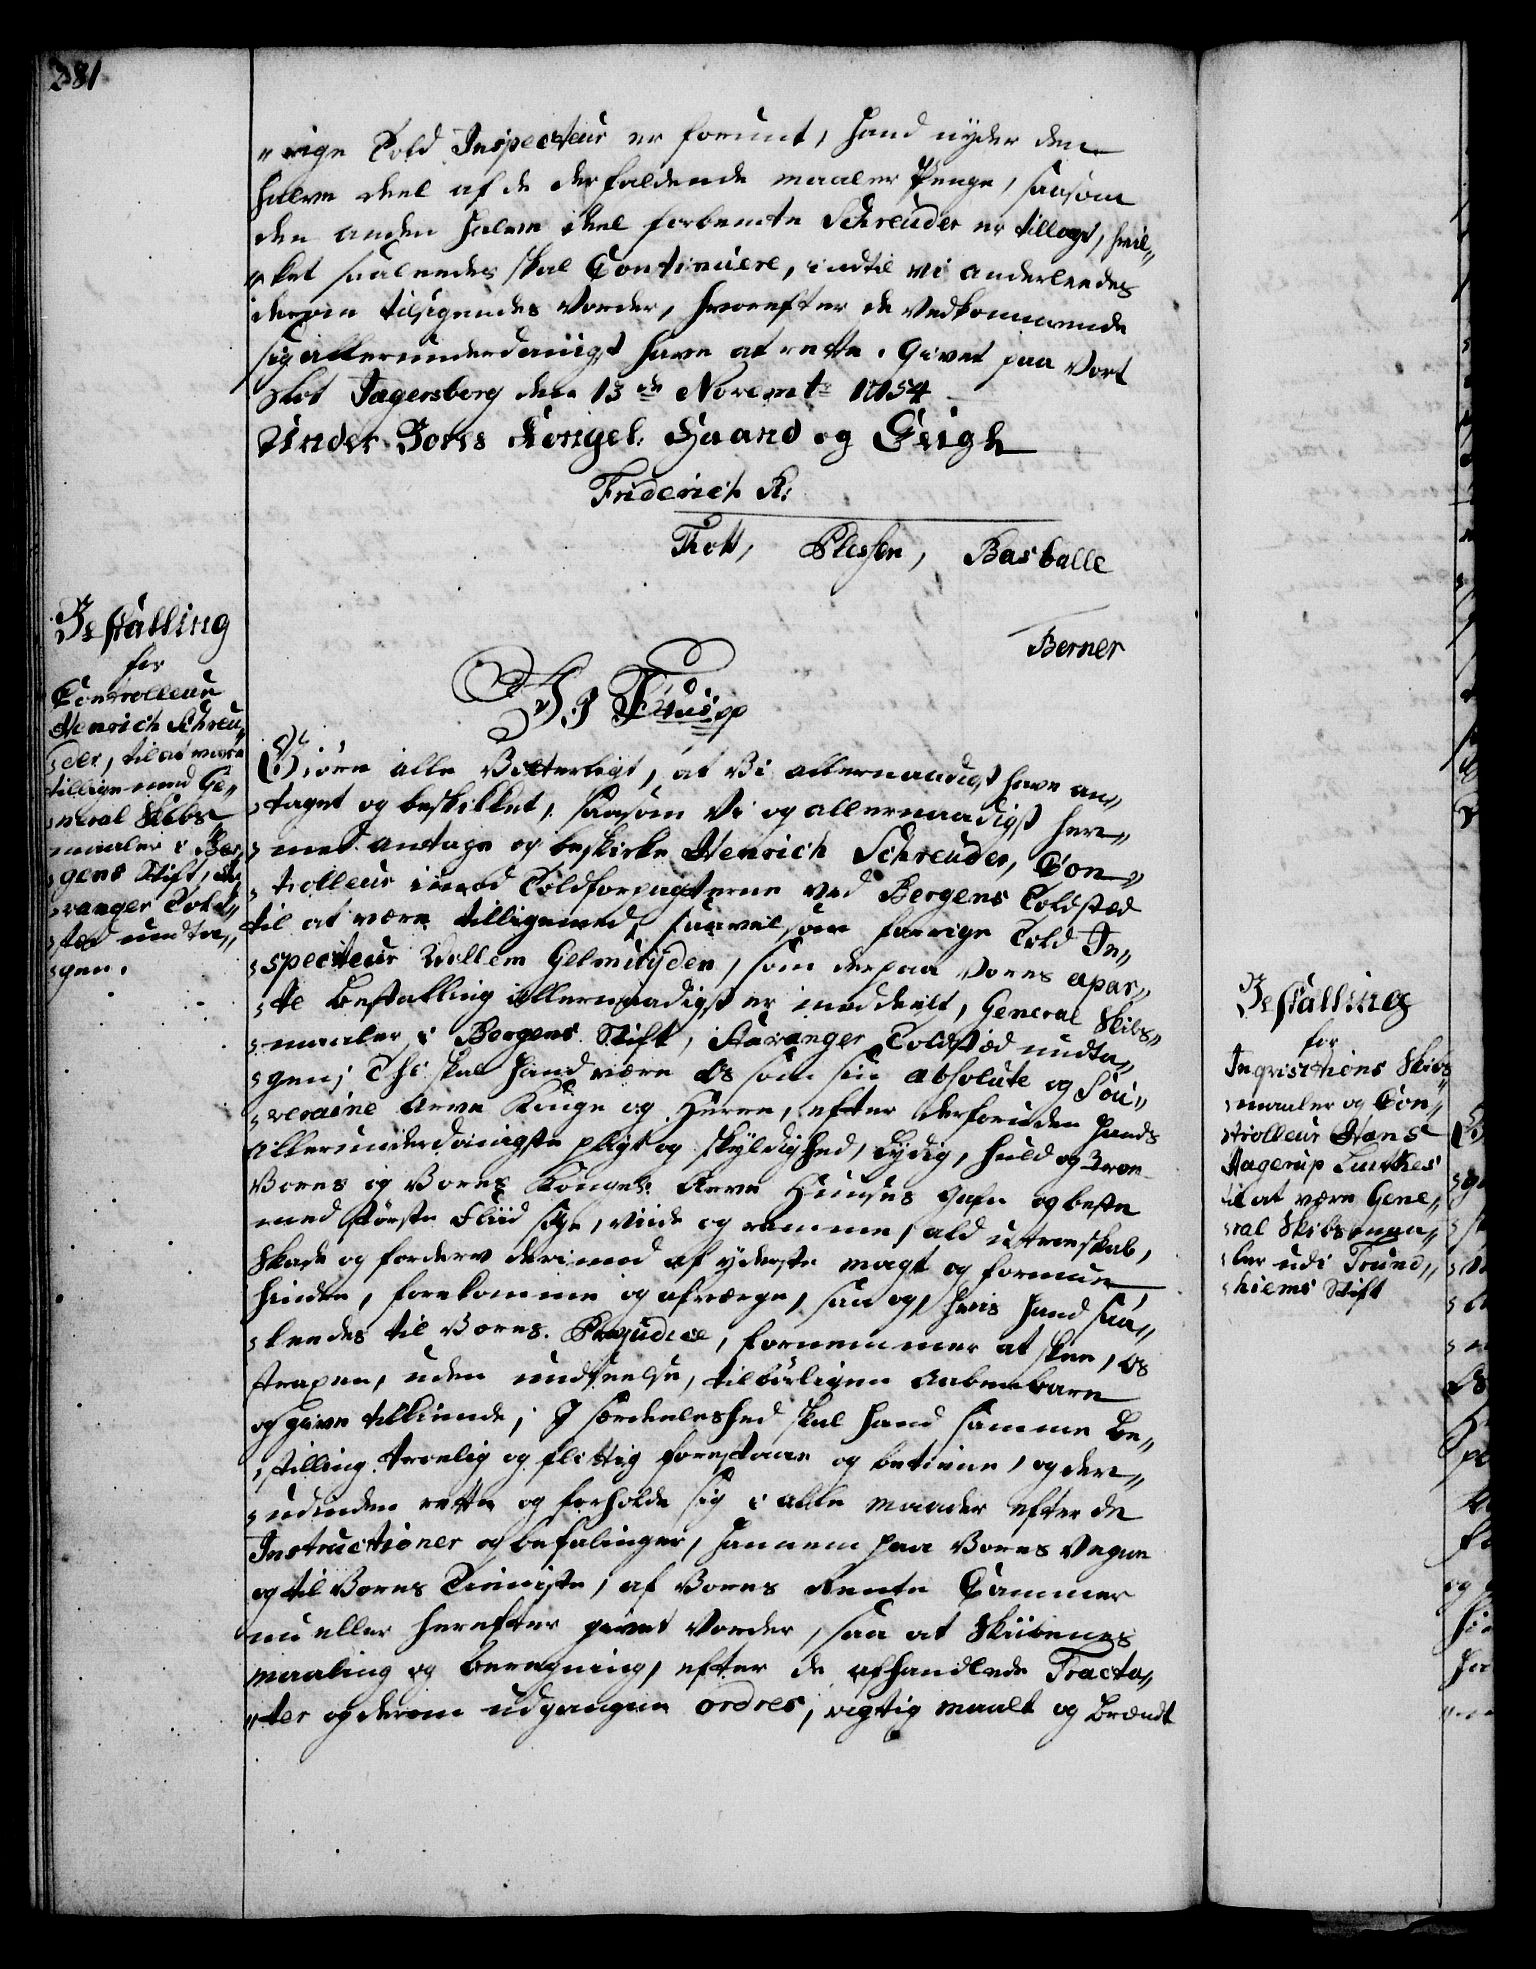 281
„rige Told Inspecteur er forunt, hand nyder den
halve deel af de derfaldende maaler Penge, saasom
den anden halve deel forbemte Schreuder er tillagt, hvil„
„ket saaleedes skal Continuere, indtil vi anderleedes
derom tilsigendes vorder, hvorefter de Vedkommende
sig allerunderdanigst have at rette. Givet paa Vort
Slot Jægersborg den 13de Novembr 1754
Under Vores Kongel: Haand og Seigl
Friderich R:
Thott, Plessen, Barballe
Berner
Bestalling
for
Controlleur
Henrich Schreu„
„der, til at være
tillige med Ge„
„neral Skibs
maaler i Ber„
„gens Stift, Sta„
„vanger Told„
„sted undta„
„gen.
Giøre alle Vitterligt, at Vi allernaadigst have an„
„taget og beskikket, saasom Vi og allernaadigst her„
„med antage og beskikke Henrich Schreuder, Con„
„trolleur imod Toldforpagterne ved Bergens Toldsted
til at være tilligemed, saavelsom forrige Told In„
„specteur Willem Gelmuyden, som derpaa Vores apar„
„te Bestalling allernaadigst er meddeelt, General Skibs„
„maaler i Bergens Stift, Stavanger Toldsted undta„
„gen; Thi skal hand være Os som sin absolute og Sou„
„veraine Arve Konge og Herre, efter derforuden hands
allerunderdanigste pligt og skyldighed, lydig, huld og troe
Vores og Vores Kongel: Arve Huuses Gafn og beste
med største Fliid søge, viide og ramme, ald utroeskab,
skade og forderv derimod af yderste magt og formue
hindre, forekomme og afværge, saa og, hvis hand saa„
„leedes til Vores Præjudice, fornemmer at skee, Os
strapen, uden undseelse, tilbørligen aabenbare
og give tilkiende; I særdeleshed skal hand samme Be„
„stilling troelig og flittig forestaae og betiene, og der„
„udinden rette og forholde sig i alle maader efter de
Instructioner og befalinger, hannem paa Vores Vegne
og til Vores Tieniste, af Vores Rente Cammer
nu eller herefter givet vorder, saa at Skibenes
maaling og beregning, efter de afhandlede Tracta„
„ter og derom udgangne ordres, rigtig maalt og brændt
Bestalling
for
Inqvisitions Skibs
„maaler og Con„
„trolleur Hans
Hagerup
til at være Gene„
„ral Skibsmaa„
„ler udi Trund„
„hiems Stift